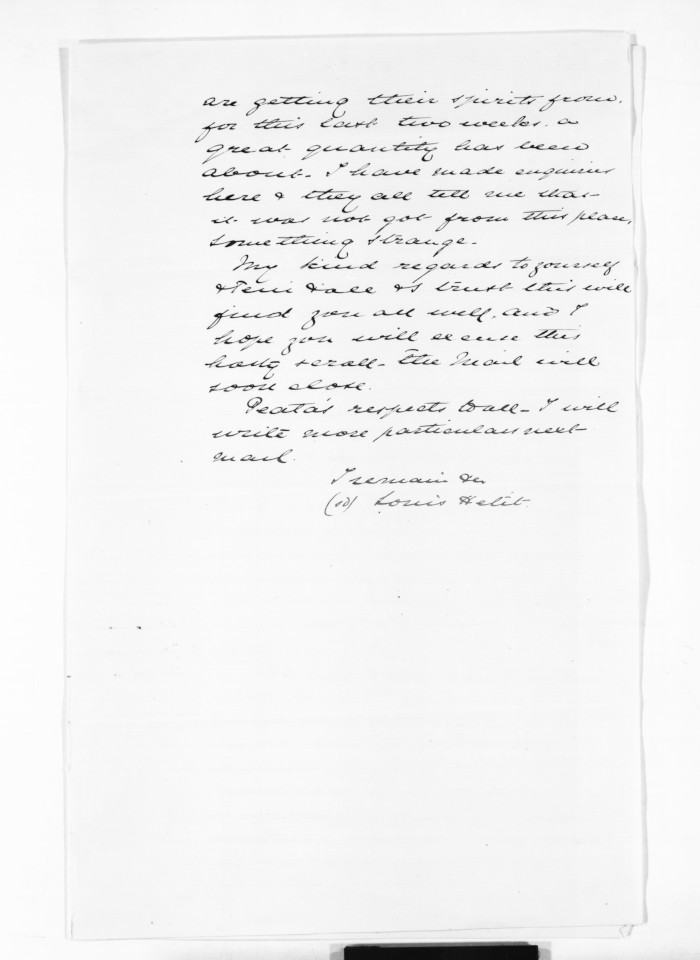 are getting their spirits from.
for this last two weeks. a
great quantity has been
about. I have made enquiries
here & they all tell me that
it was not got from this place,
something strange.
My kind regards to yourself
& Teni & all & I trust this will
find you all well, and I
hope you will excuse this
hasty scrall - the Mail will
soon close.
Peata's respects to all - I will
write more particulars next
mail.
I remain &c
(sd) Louis Hetit.